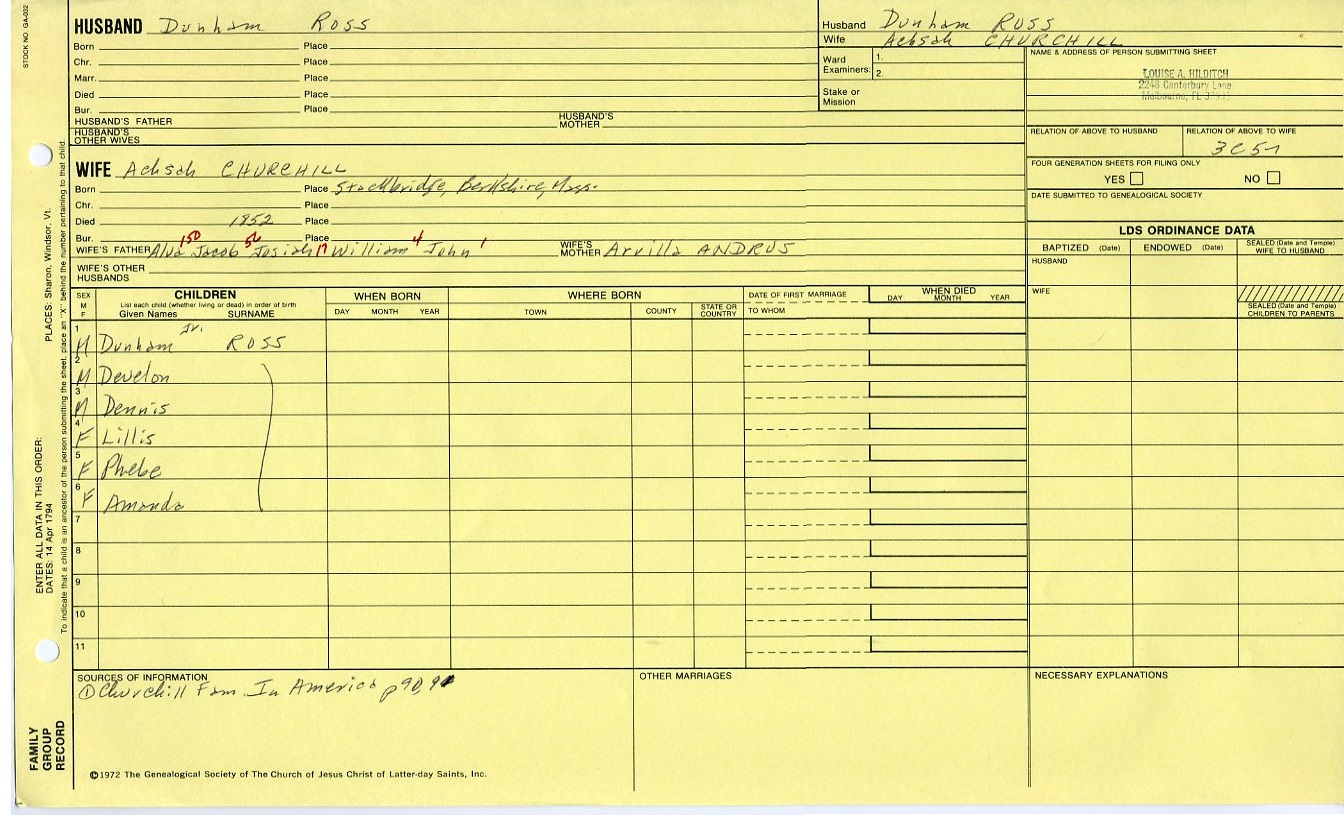 STOCK NO. GA-032
HUSBAND Dunham ROSS
Born Place
Chr. Place
Marr. Place
Died Place
Bur. Place
HUSBAND'S FATHER HUSBAND'S MOTHER
HUSBAND'S OTHER WIVES
Husband Dunham ROSS
Wife Achsah CHURCHILL
Ward Examiners: 1.
2.
Stake or Mission
NAME & ADDRESS OF PERSON SUBMITTING SHEET
LOUISE A. HILDITCH
2248 Canterbury Lane
Melbourne, FL
RELATION OF ABOVE TO HUSBAND RELATION OF ABOVE TO WIFE
3C5r
FOUR GENERATION SHEETS FOR FILING ONLY
YES NO
DATE SUBMITTED TO GENEALOGICAL SOCIETY
WIFE Achsah CHURCHILL
Born Place Stockbridge, Berkshire, Mass.
Chr. Place
Died 1852 Place
Bur. Place
150 56 17 4 1
WIFE'S FATHER Alva Jacob Josiah William John WIFE'S MOTHER Arvilla ANDRUS
WIFE'S OTHER HUSBANDS
LDS ORDINANCE DATA
BAPTIZED (Date) ENDOWED (Date) SEALED (Date and Temple) WIFE TO HUSBAND
HUSBAND
WIFE
SEALED (Date and Temple) CHILDREN TO PARENTS
SEX M F CHILDREN WHEN BORN WHERE BORN DATE OF FIRST MARRIAGE WHEN DIED
List each child (whether living or dead) in order of birth
Given Names SURNAME DAY MONTH YEAR TOWN COUNTY STATE OR COUNTRY TO WHOM DAY MONTH YEAR
1 M Dunham Jr. ROSS
2 M Develon
3 M Dennis
4 F Lillis
5 F Phebe
6 F Amanda
7
8
9
10
11
SOURCES OF INFORMATION
① Churchill Fam. In America p90, 91
OTHER MARRIAGES
NECESSARY EXPLANATIONS
©1972 The Genealogical Society of The Church of Jesus Christ of Latter-day Saints, Inc.
FAMILY GROUP RECORD
ENTER ALL DATA IN THIS ORDER:
DATES: 14 Apr 1794
PLACES: Sharon, Windsor, Vt.
To indicate that a child is an ancestor of the person submitting the sheet, place an "X" behind the number pertaining to that child.